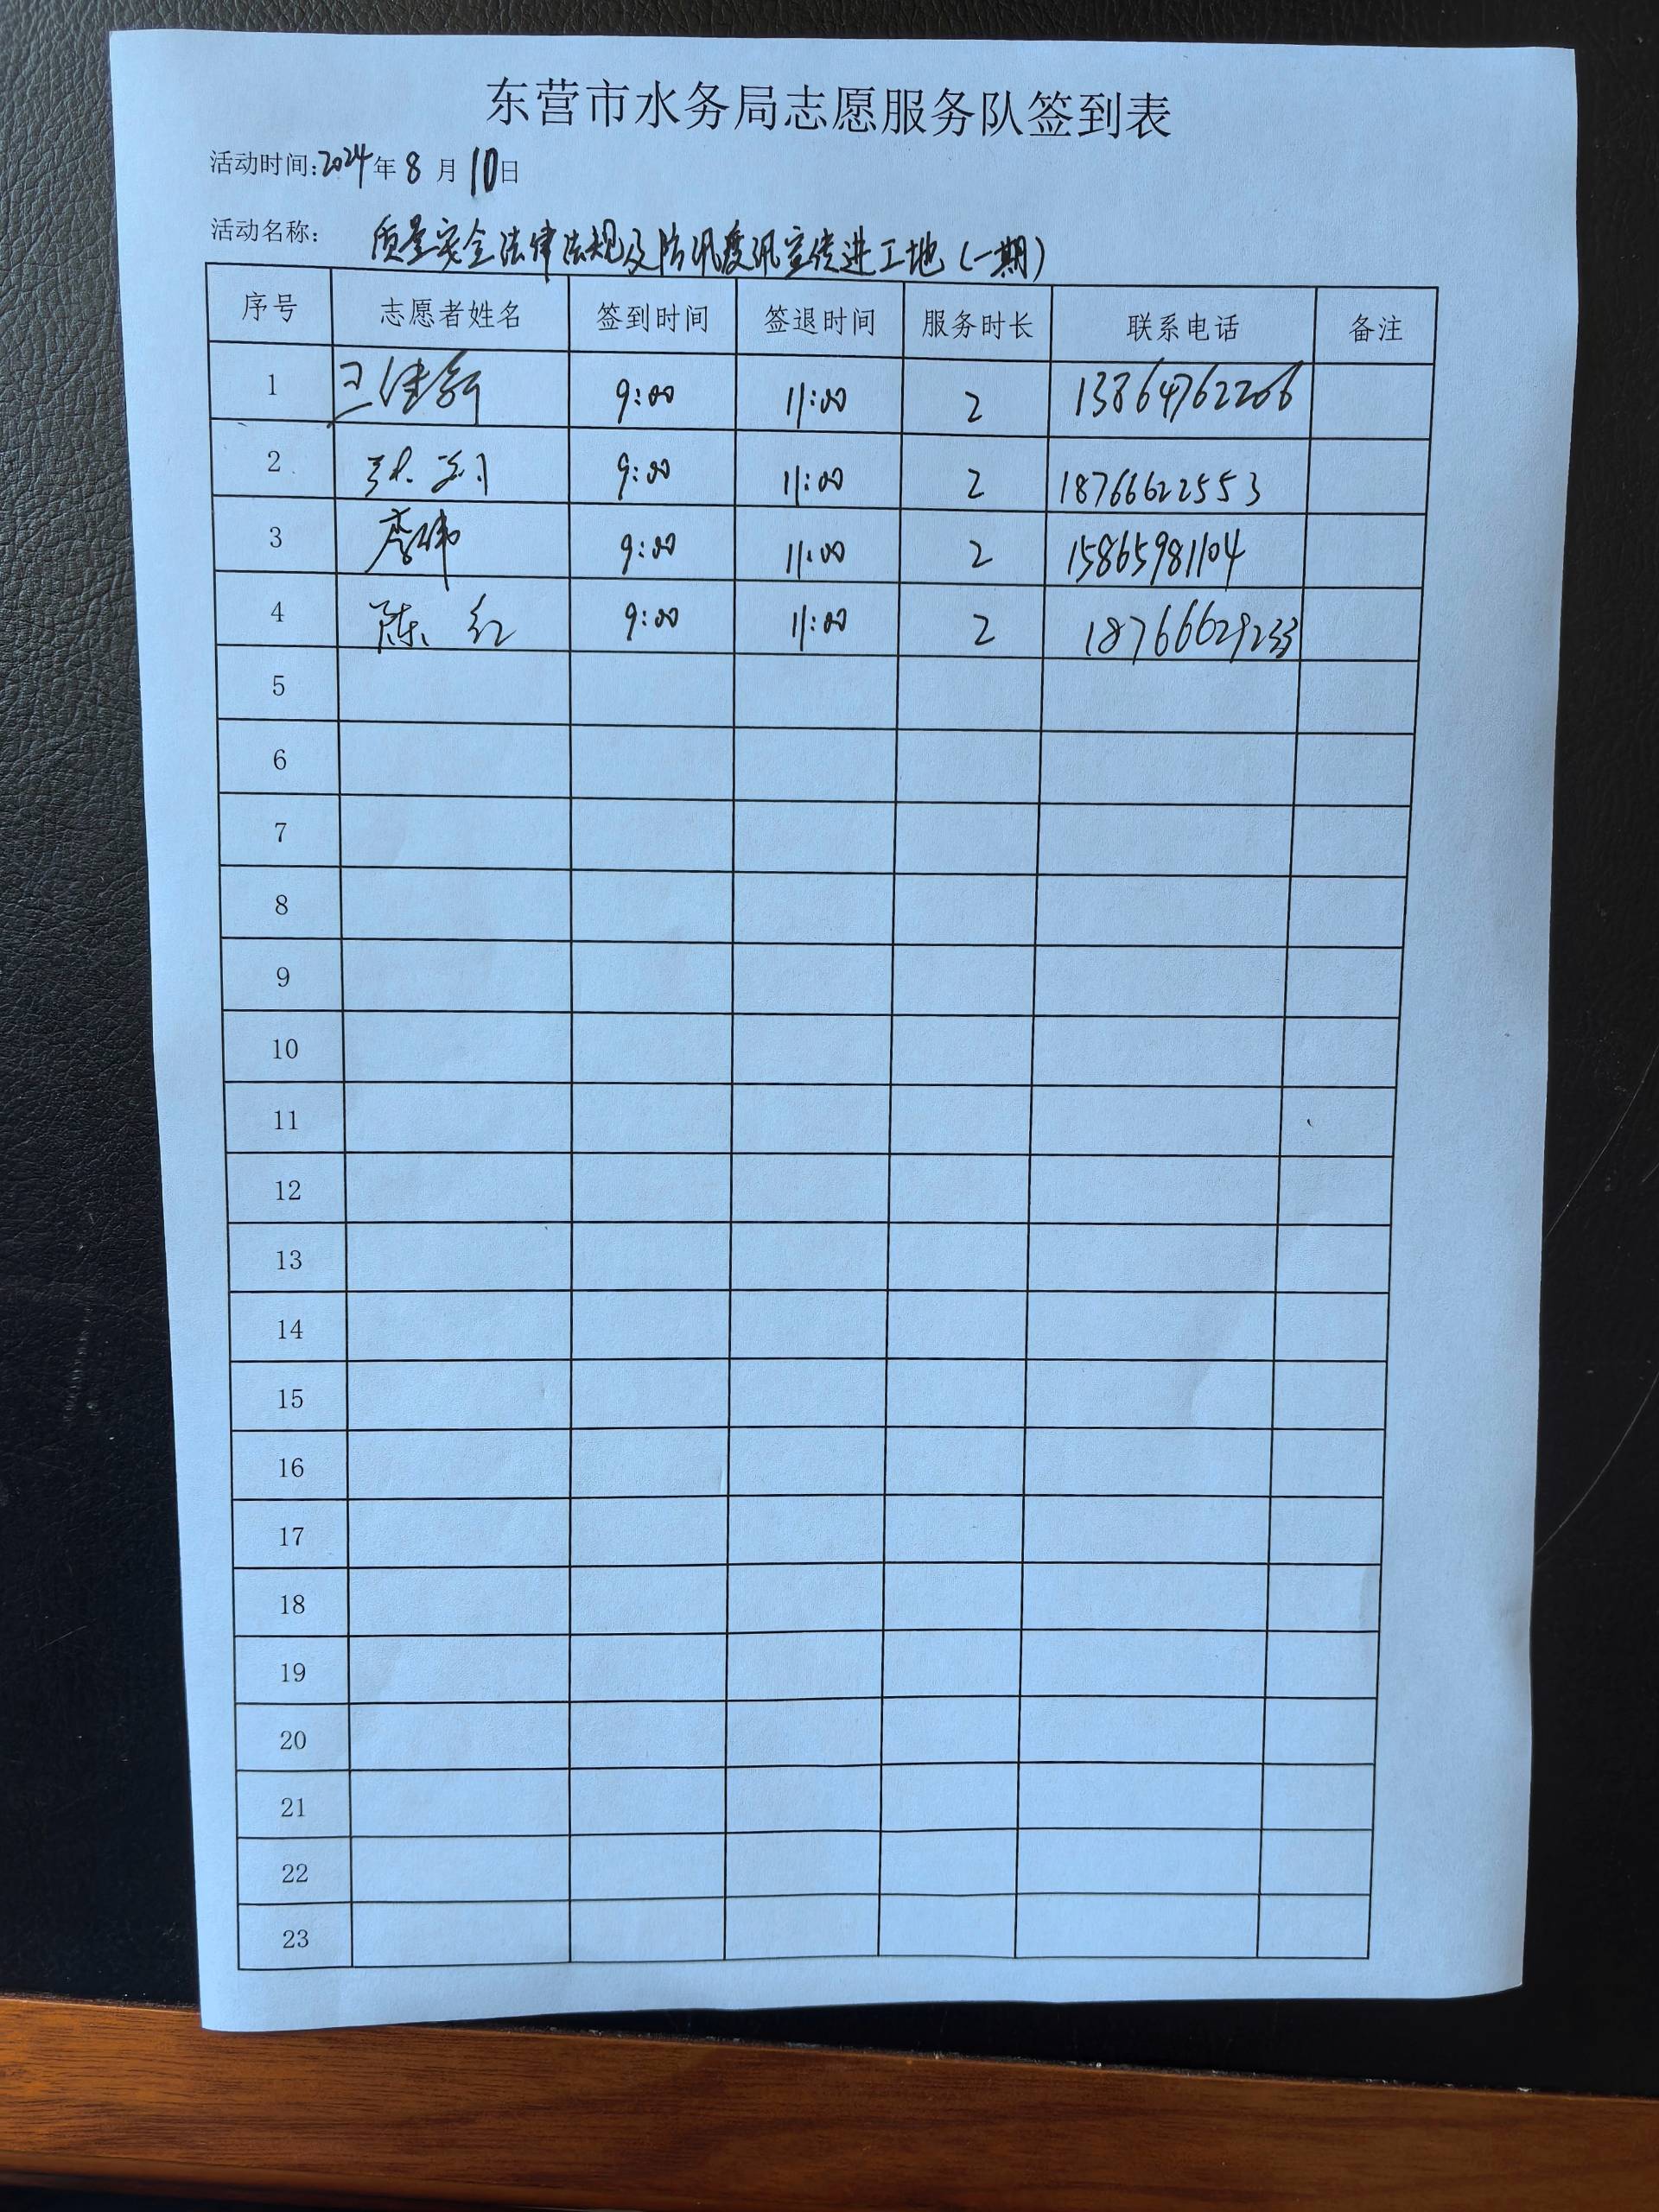 东营市水务局志愿服务队签到表
活动时间:2024年8月10日
活动名称: 质量安全法律法规及防汛度汛宣传进工地(一期)
序号 志愿者姓名 签到时间 签退时间 服务时长 联系电话 备注
1 9:00 11:00 2 13864762266
2 9:00 11:00 2 18766622553
3 李伟 9:00 11:00 2 15865981104
4 陈红 9:00 11:00 2 18766629233
5
6
7
8
9
10
11
12
13
14
15
16
17
18
19
20
21
22
23